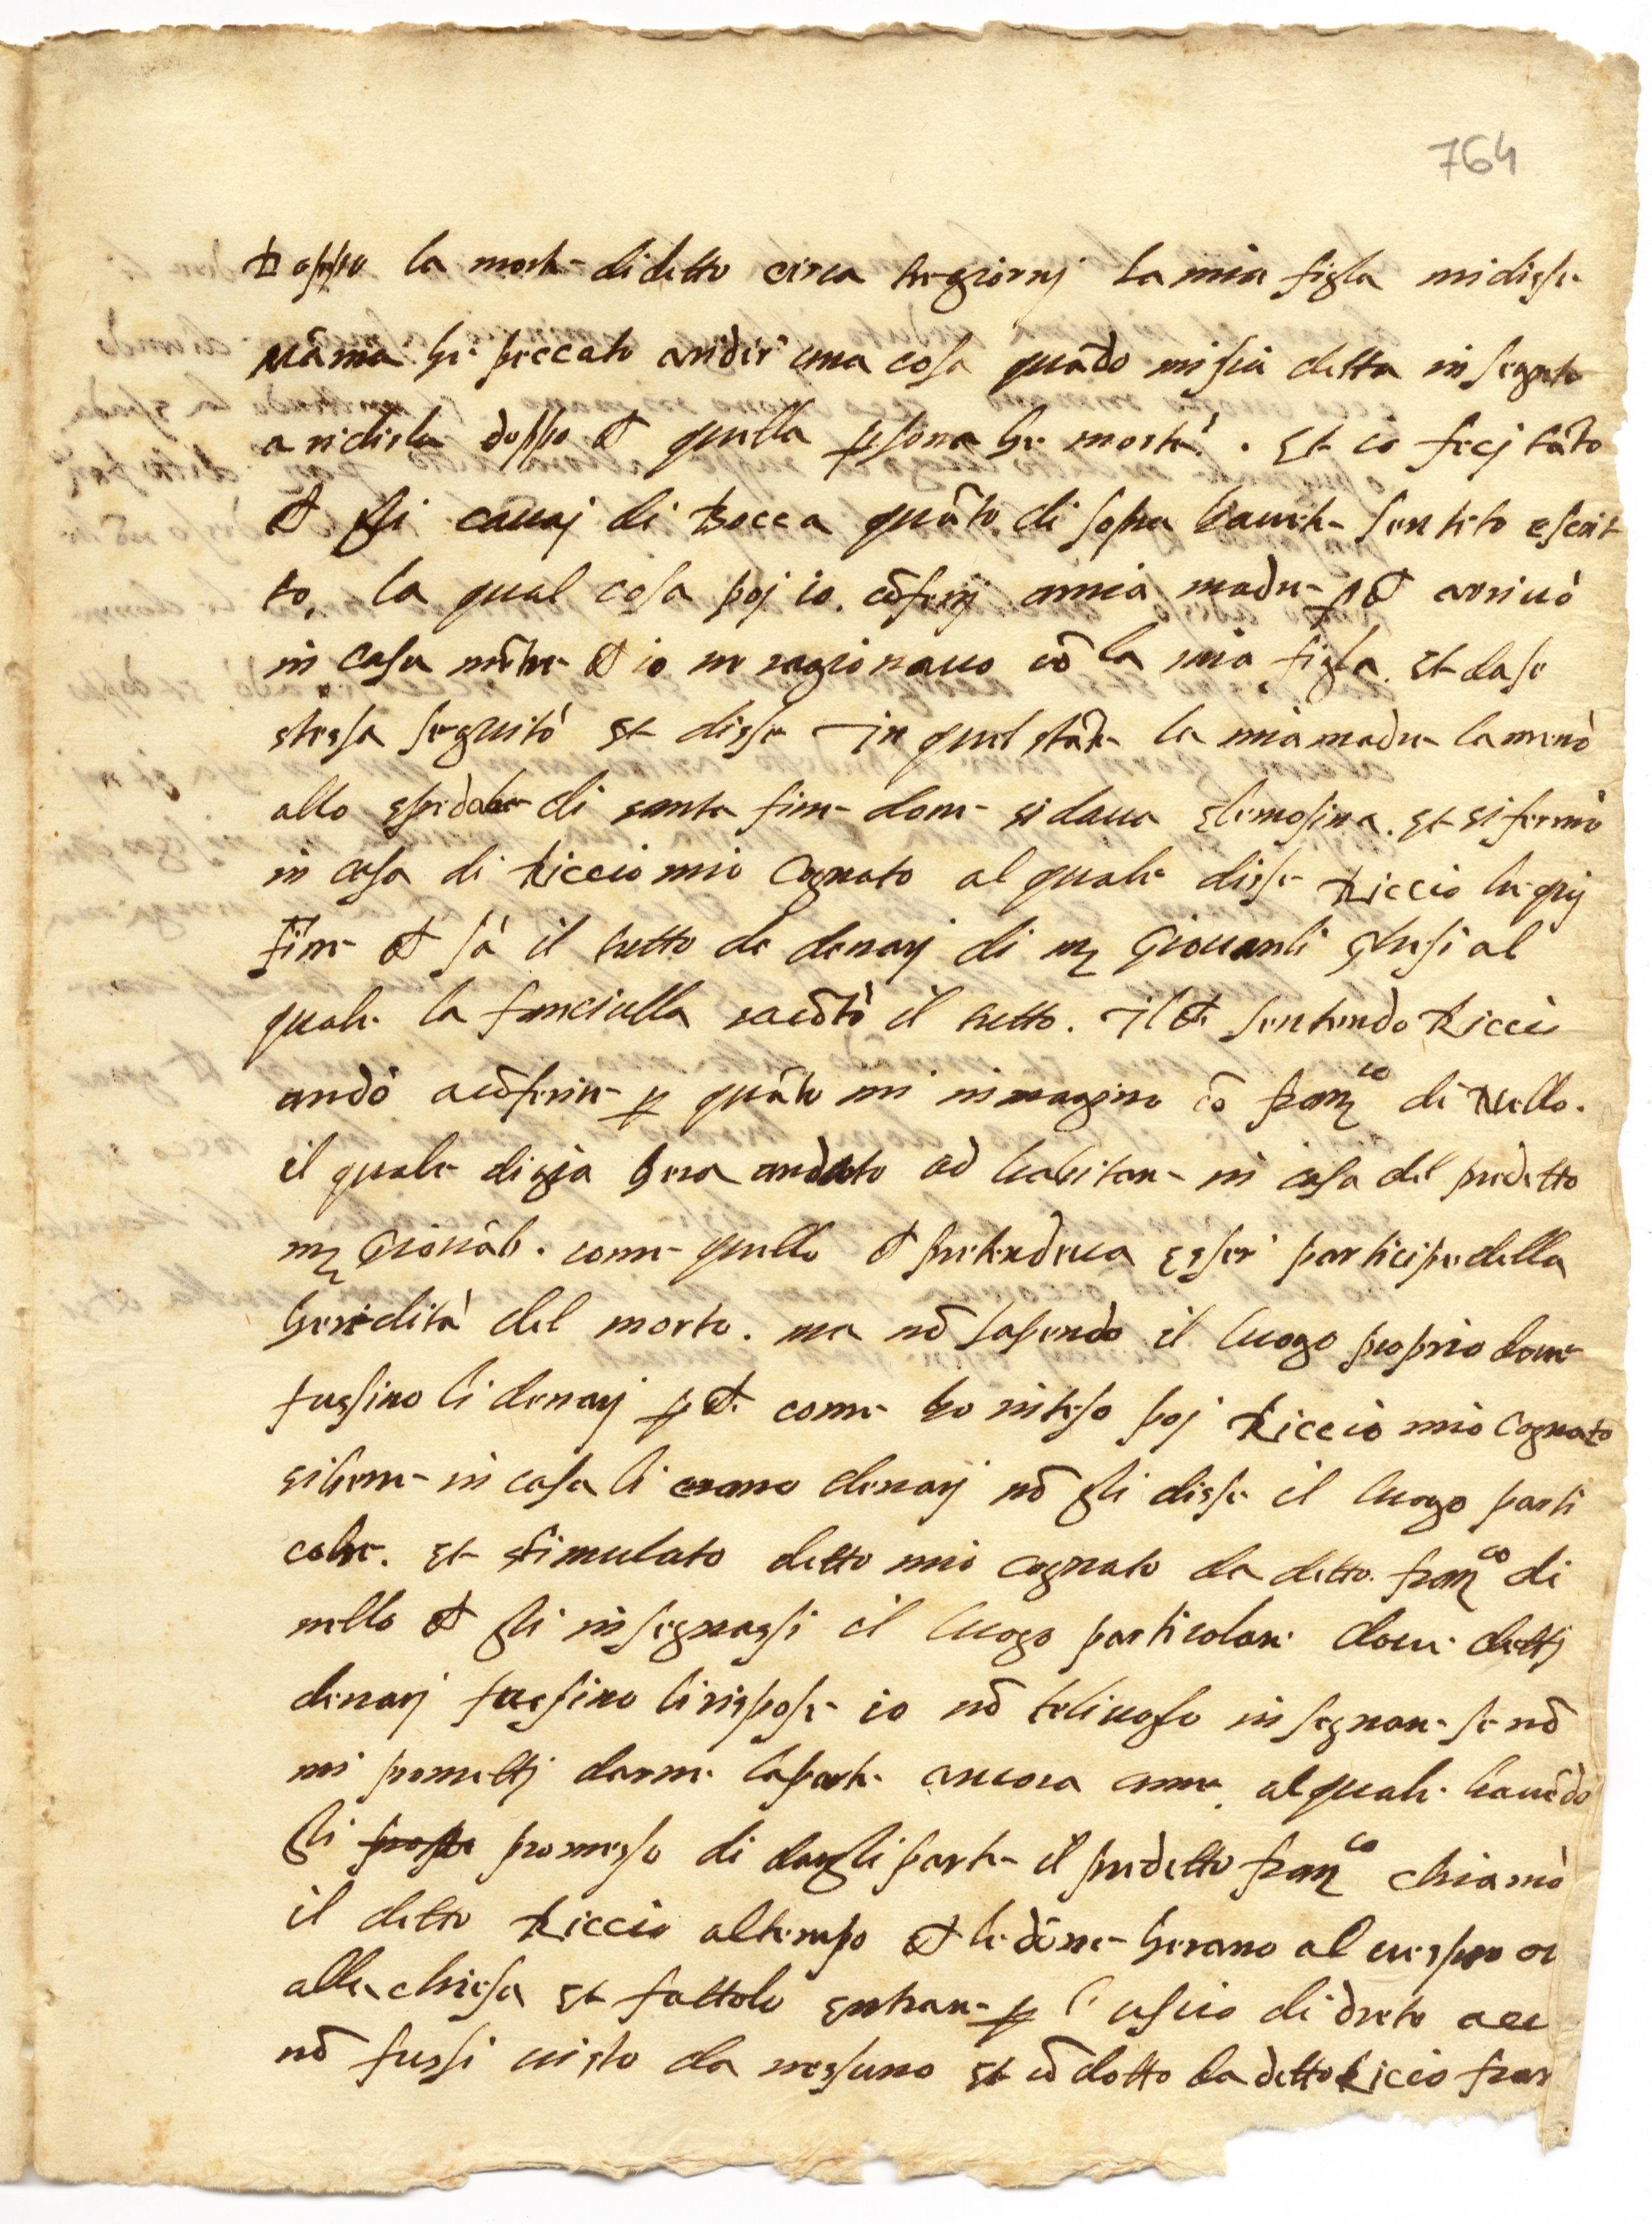 764
Doppo la morte di detto circa tre giorni La mia figla mi disse
Mãma he peccato a ridir' una cosa quãdo mi sia detta in segreto
a ridirla doppo che quella psona he morta? . Et io feci tãto
che gli cavai di Bocca quãto di sopra havete sentito e scrit-
to, la qual cosa poj io cõferij a mia madre pche arrivò
in casa mẽtre che io ne ragionavo cõ la mia figla. Et da se
stessa seguitò et disse In quel stãte la mia madre la menò
allo spedale di santa fine dove si dava elemosina. et si fermò
in casa di Riccio mio Cognato al quale disse Riccio he quj
fine che sà il tutto de denarj di mʒ Giovanbi Ghesi al
quale la fanciulla racõtò il tutto. Il che sentendo Riccio
andò a cõferire p quãto mi immagino cõ franco di Nello.
il quale di gia hera andato ad habitare in casa del predetto
mʒ Giovãb. come quello che pretendeva esser' participe della
heredità del morto. ma nõ sapendo il luogo proprio dove
fussino li denarj pche come ho inteso poj Riccio mio Cognato
si bene in casa li erano denarj nõ gli disse il luogo parti
colre. et stimulato detto mio cognato da detto franco di
nello che gli insegnassi il luogo particolare dove dettj
denarj fussino li rispose io nõ te li voglo insegnare se nõ
mi promettj darne la parte ancora a me. al quale havẽdo
gli promesso di dargli parte il predetto franco chiamò
il detto Riccio al tempo che le dõne herano al vespro o
alla chiesa et fattolo entrare p l'uscio di dreto acc
nõ fussi visto da nessuno et cõdotto da detto Riccio fran